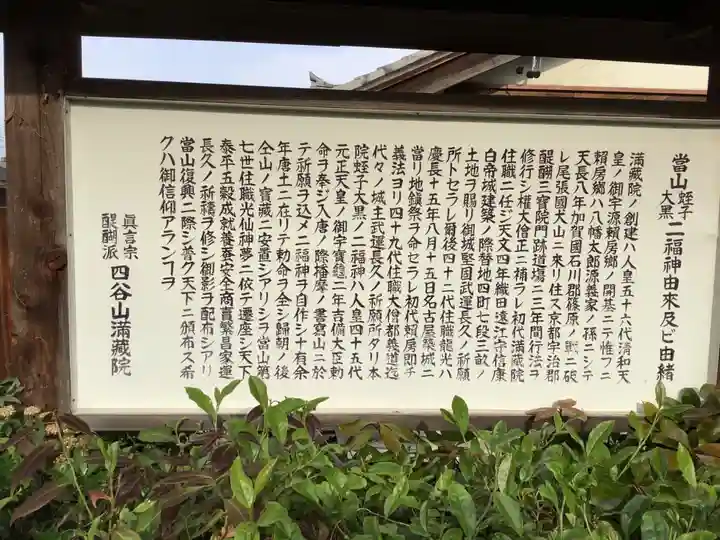 當山 蛭子 大黒 二福神由來及ビ由緒
満藏院ノ創建ハ人皇五十六代淸和天
皇ノ御宇源賴房郷ノ開基ニテ惟フニ
賴房郷ハ八幡太郎源義家ノ孫ニシテ
天長八年加賀國石川郡篠原ノ戰ニ破
レ尾張國犬山ニ來リ住ス京都宇治郡
醍醐三寳院門跡道場ニ三年間行法ヲ
修行シ權大僧正ニ補ラレ初代満藏院
住職ニ任ジ天文四年織田遠江守信康
白帝城建築ノ際替地四町七段三畝ノ
土地ヲ賜リ御城堅固武運長久ノ祈願
所トセラレ爾後四十二代住職龍光ハ
慶長十五年八月十五日名古屋築城ニ
當リ地鎭祭ヲ命セラレ初代賴房即チ
義法ヨリ四十九代住職大僧都義道迄
代々ノ城主武運長久ノ祈願所タリ本
院蛭子大黒ノ二福神ハ人皇四十五代
元正天皇ノ御宇寳龜二年吉備大臣勅
命ヲ奉ジ入唐ノ際播摩ノ書寫山ニ於
テ祈願ヲ込メ二福神ヲ自作シ十有余
年唐土ニ在リテ勅命ヲ全シ歸朝ノ後
仝山ノ寳藏ニ安置シアリシヲ當山第
七世住職光仙神夢ニ依テ遷座シ天下
泰平五穀成就養蚕安全商賣繁昌家運
長久ノ祈禱ヲ修シ御影ヲ配布シアリ
當山復興ニ際シ普ク天下ニ頒布ス希
クハ御信仰アランコヲ
眞言宗 醍醐派 四谷山満藏院